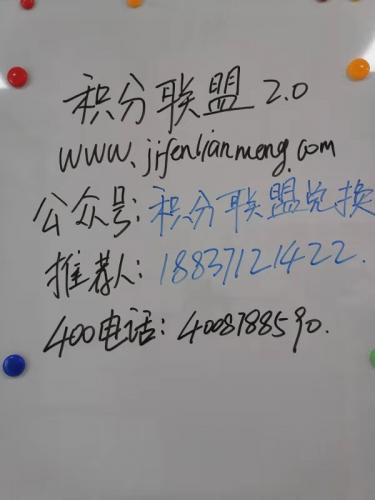 积分联盟 2.0
www.jifenlianmeng.com
公众号:积分联盟兑换
推荐人:18837121422.
400电话:4008788590.